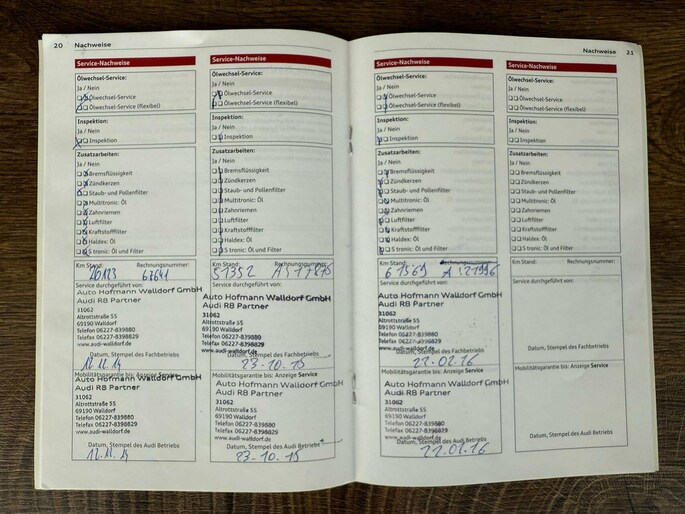 20 Nachweise
Service-Nachweise
Ölwechsel-Service:
Ja / Nein
Ölwechsel-Service
Ölwechsel-Service (flexibel)
Inspektion:
Ja / Nein
Inspektion
Zusatzarbeiten:
Ja / Nein
Bremsflüssigkeit
Zündkerzen
Staub- und Pollenfilter
Multitronic: Öl
Zahnriemen
Luftfilter
Kraftstofffilter
Haldex: Öl
S tronic: Öl und Filter
Km Stand: Rechnungsnummer:
26123 67641
Service durchgeführt von:
Auto Hofmann Walldorf GmbH
Audi R8 Partner
31062
Altrottstraße 55
69190 Walldorf
Telefon 06227-839880
Telefax 06227-8398829
www.audi-walldorf.de
Datum, Stempel des Fachbetriebs
12.11.14
Mobilitätsgarantie bis: Anzeige Service
Auto Hofmann Walldorf GmbH
Audi R8 Partner
31062
Altrottstraße 55
69190 Walldorf
Telefon 06227-839880
Telefax 06227-8398829
www.audi-walldorf.de
Datum, Stempel des Audi Betriebs
12.11.14
Service-Nachweise
Ölwechsel-Service:
Ja / Nein
Ölwechsel-Service
Ölwechsel-Service (flexibel)
Inspektion:
Ja / Nein
Inspektion
Zusatzarbeiten:
Ja / Nein
Bremsflüssigkeit
Zündkerzen
Staub- und Pollenfilter
Multitronic: Öl
Zahnriemen
Luftfilter
Kraftstofffilter
Haldex: Öl
S tronic: Öl und Filter
Km Stand: Rechnungsnummer:
51352
Service durchgeführt von:
Auto Hofmann Walldorf GmbH
Audi R8 Partner
31062
Altrottstraße 55
69190 Walldorf
Telefon 06227-839880
Telefax 06227-8398829
www.audi-walldorf.de
Datum, Stempel des Fachbetriebs
23-10.15
Mobilitätsgarantie bis: Anzeige Service
Auto Hofmann Walldorf GmbH
Audi R8 Partner
31062
Altrottstraße 55
69190 Walldorf
Telefon 06227-839880
Telefax 06227-8398829
www.audi-walldorf.de
Datum, Stempel des Audi Betriebs
23-10.15
Nachweise 21
Service-Nachweise
Ölwechsel-Service:
Ja / Nein
Ölwechsel-Service
Ölwechsel-Service (flexibel)
Inspektion:
Ja / Nein
Inspektion
Zusatzarbeiten:
Ja / Nein
Bremsflüssigkeit
Zündkerzen
Staub- und Pollenfilter
Multitronic: Öl
Zahnriemen
Luftfilter
Kraftstofffilter
Haldex: Öl
S tronic: Öl und Filter
Km Stand: Rechnungsnummer:
61569 A 121996
Service durchgeführt von:
Auto Hofmann Walldorf GmbH
Audi R8 Partner
31062
Altrottstraße 55
69190 Walldorf
Telefon 06227-839880
Telefax 06227-8398829
www.audi-walldorf.de
Datum, Stempel des Fachbetriebs
22.02.16
Mobilitätsgarantie bis: Anzeige Service
Auto Hofmann Walldorf GmbH
Audi R8 Partner
31062
Altrottstraße 55
69190 Walldorf
Telefon 06227-839880
Telefax 06227-8398829
www.audi-walldorf.de
Datum, Stempel des Audi Betriebs
22.02.16
Service-Nachweise
Ölwechsel-Service:
Ja / Nein
Ölwechsel-Service
Ölwechsel-Service (flexibel)
Inspektion:
Ja / Nein
Inspektion
Zusatzarbeiten:
Ja / Nein
Bremsflüssigkeit
Zündkerzen
Staub- und Pollenfilter
Multitronic: Öl
Zahnriemen
Luftfilter
Kraftstofffilter
Haldex: Öl
S tronic: Öl und Filter
Km Stand: Rechnungsnummer:
Service durchgeführt von:
Datum, Stempel des Fachbetriebs
Mobilitätsgarantie bis: Anzeige Service
Datum, Stempel des Audi Betriebs